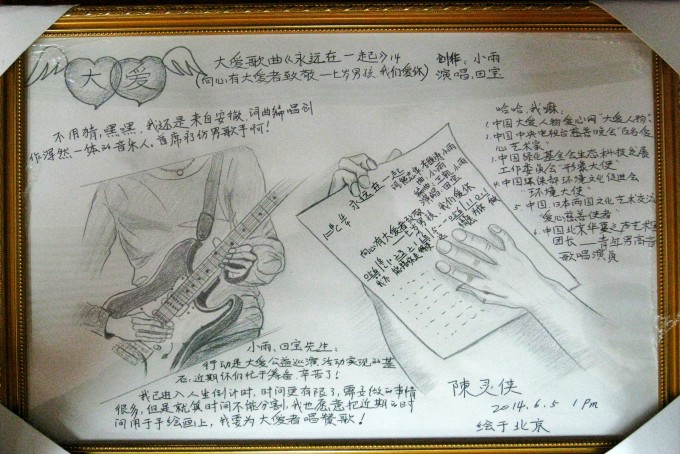 大爱
大爱歌曲《永远在一起》14
(向心有大爱者致敬—上岁男孩 我们爱你)
创作：小雨
演唱：田宝
不用猜，嘿嘿，我还是来自安徽、词曲编唱创
作浑然一体的音乐人，首席
男歌手啊！
哈哈，我嘛：
1.中国大爱人物爱心网"大爱人物"；
2.中国中央电视台慈善晚会"百名爱
心艺术家"
3.中国绿化基金会生态科技发展
工作委员会"形象大使"
4.中国环保部环境文化促进会
"环境大使"
5.中国、日本两国文化艺术交流
"爱心慈善使者"
6.中国北京华夏之声艺术团
团长——青年男高音
歌唱演员
永远在一起
演唱：田宝
向心有大爱者致敬
我们爱你
小雨、田宝先生：
行动是大爱公益巡演活动实现的基
石，近期你们忙于筹备，辛苦了！
我已进入人生倒计时，时间更有限了，需要做的事情
很多，但是就算时间不能分割，我也愿意把近期的时
间用于手绘画上，我要为大爱者唱赞歌！
陳灵侠
2014.6.5 1pm
绘于北京